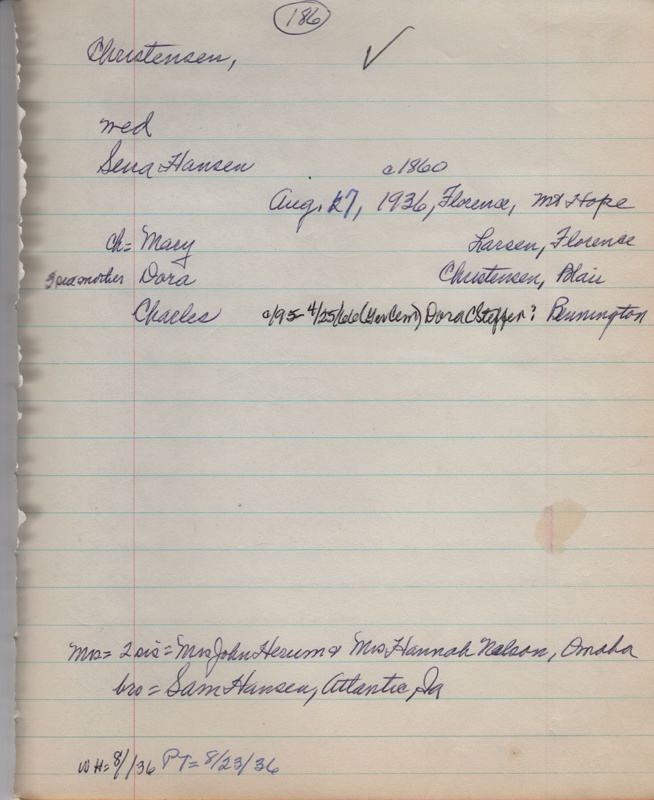 186
Christensen,
med
Sena Hansen c1860
Aug. 27, 1936, Florence, Mt Hope
ch= Mary Larsen, Florence
Dora Christensen, Blair
Charles c/95- 4/25/66 (Ger Cem) Dora C Steffen? Bennington
Mrs= 2 sis= Mrs John Herum & Mrs Hannah Nelson, Omaha
bro= Sam Hansen, Atlantic, Ia
WH= 8/ /36 PT= 8/23/36